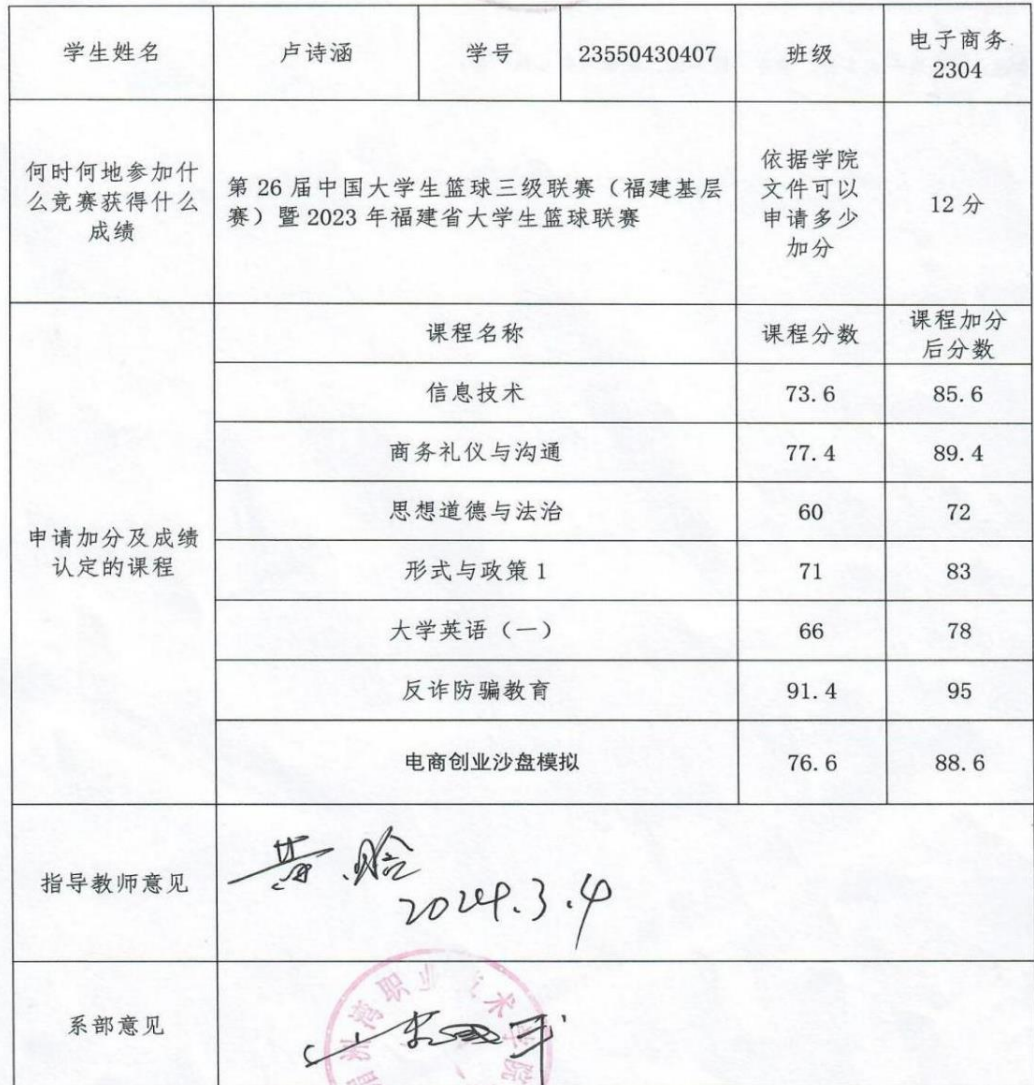 学生姓名 卢诗涵 学号 23550430407 班级 电子商务
2304
何时何地参加什
么竞赛获得什么
成绩
第 26 届中国大学生篮球三级联赛（福建基层
赛）暨 2023 年福建省大学生篮球联赛
依据学院
文件可以
申请多少
加分
12 分
申请加分及成绩
认定的课程
课程名称 课程分数 课程加分
后分数
信息技术 73.6 85.6
商务礼仪与沟通 77.4 89.4
思想道德与法治 60 72
形式与政策 1 71 83
大学英语（一） 66 78
反诈防骗教育 91.4 95
电商创业沙盘模拟 76.6 88.6
指导教师意见
黄晗
2024.3.4
系部意见
洲湾职业 术学院